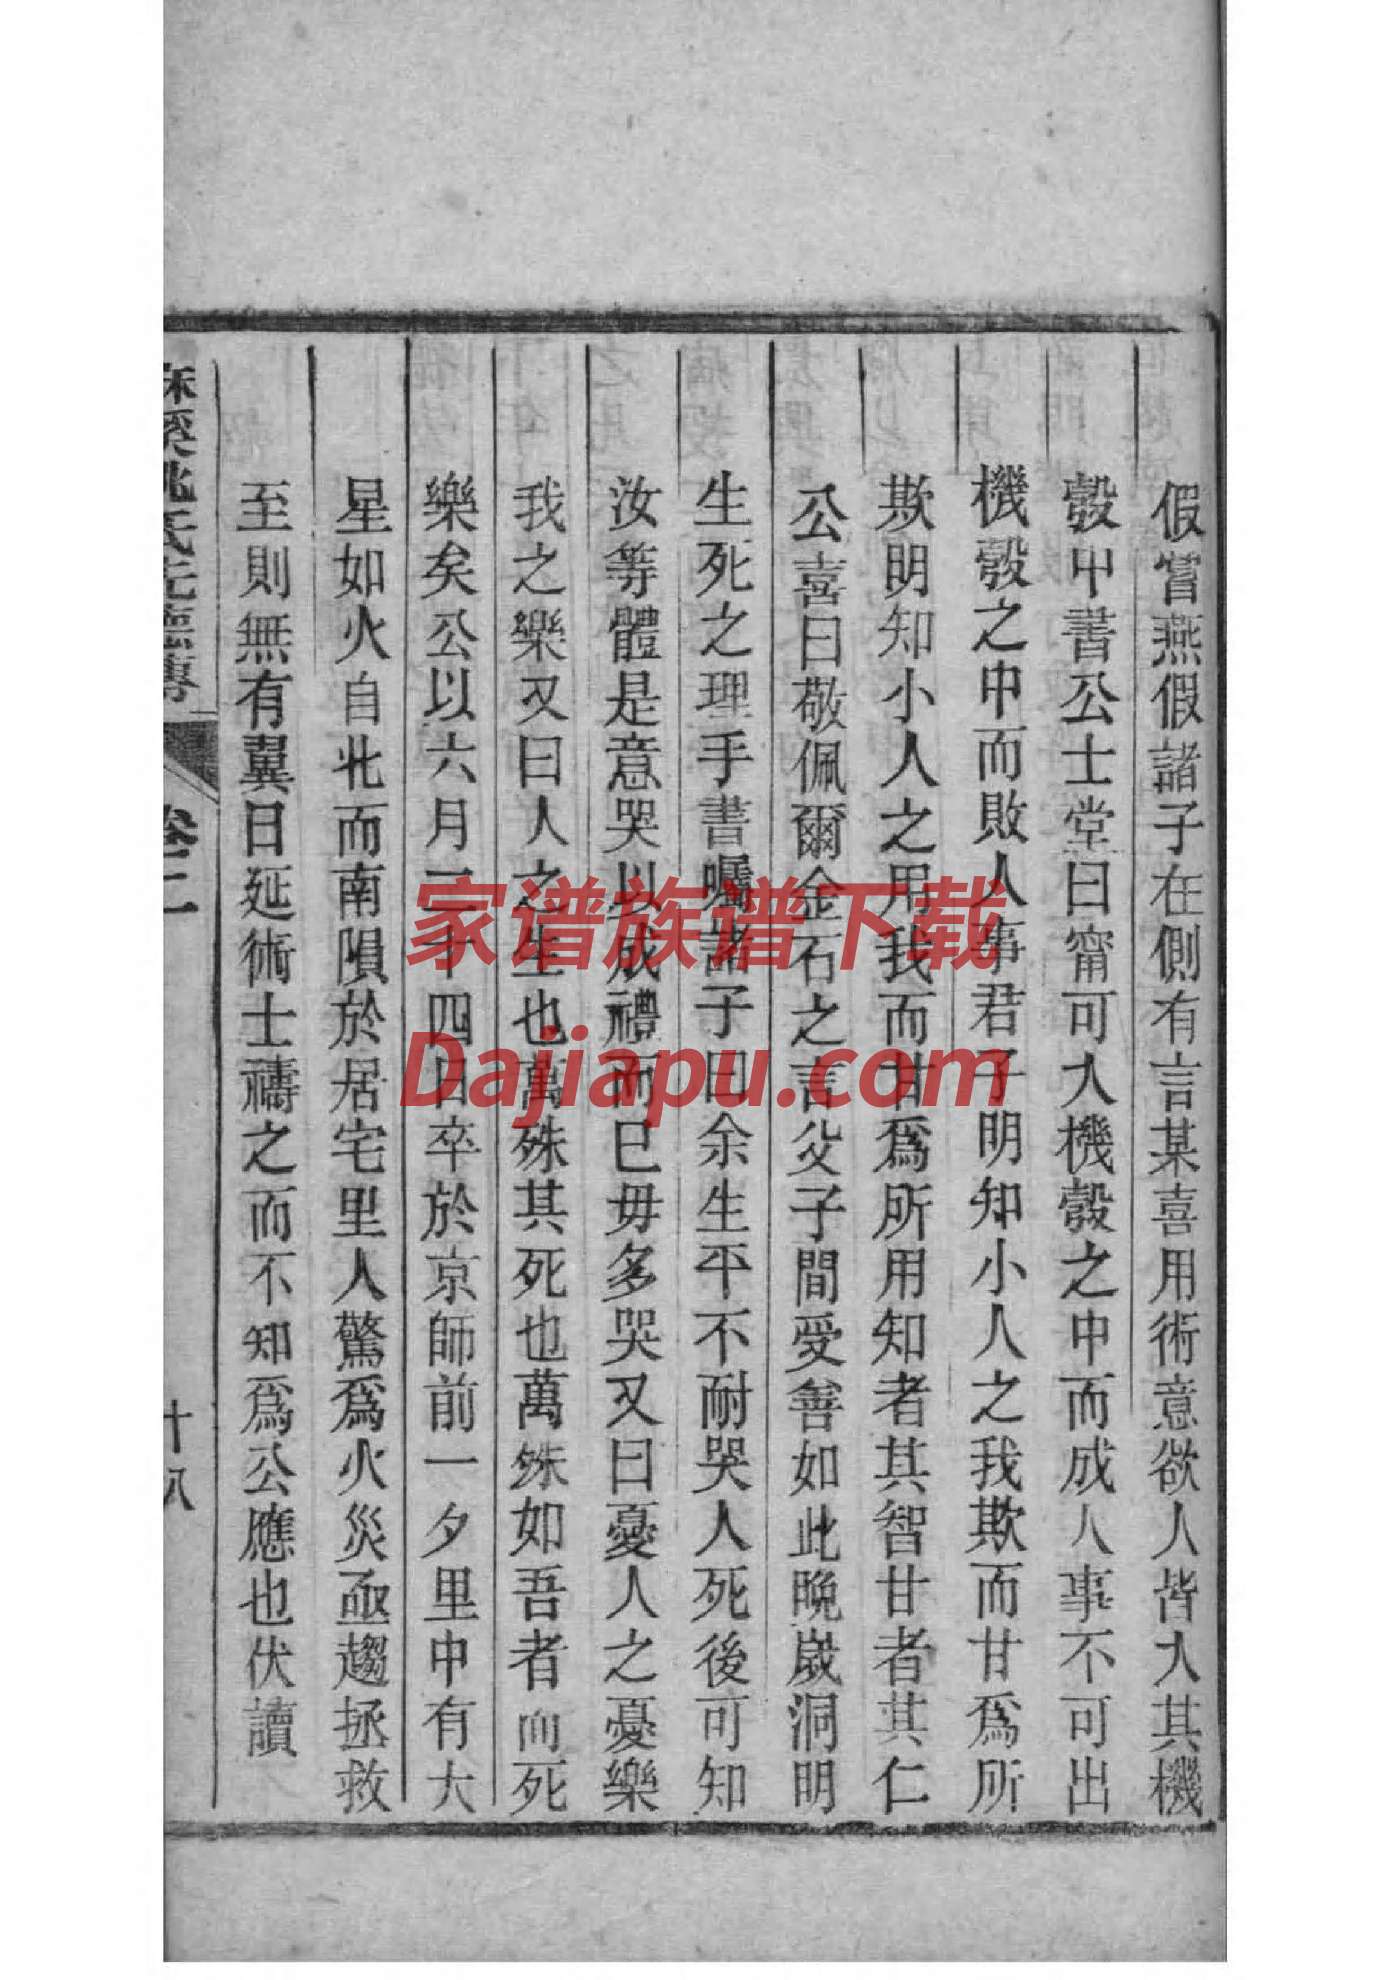 假嘗燕假諸子在側有言某喜用術意欲人皆入其機
彀中書公士堂曰甯可入機彀之中而成人事不可出
機彀之中而敗人事君子明知小人之我欺而甘爲所
欺明知小人之用我而甘爲所用知者其智甘者其仁
公喜曰敬佩爾金石之言父子間受善如此晚歲洞明
生死之理手書囑諸子曰余生平不耐哭人死後可知
汝等體是意哭以成禮而已毋多哭又曰憂人之憂樂
我之樂又曰人之生也萬殊其死也萬殊如吾者而死
樂矣公以六月二十四日卒於京師前一夕里中有大
星如火自北而南隕於居宅里人驚爲火災亟趨拯救
至則無有翼日延術士禱之而不知爲公應也伏讀
麻溪姚氏先德傳 卷二 十八
家谱族谱下载
Dajiapu.com